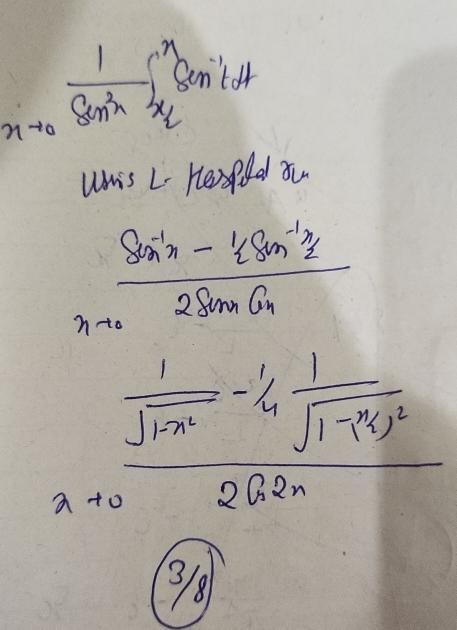 x→0 1/Sin²x ∫_{x/2}^{x} Sin⁻¹t dt
Using L- Hospital ru
x→0 (Sin⁻¹x − 1/2 Sin⁻¹ x/2) / (2 Sinx Cosx)
x→0 (1/√(1-x²) − 1/4 1/√(1-(x/2)²)) / (2 Cos2x)
3/8